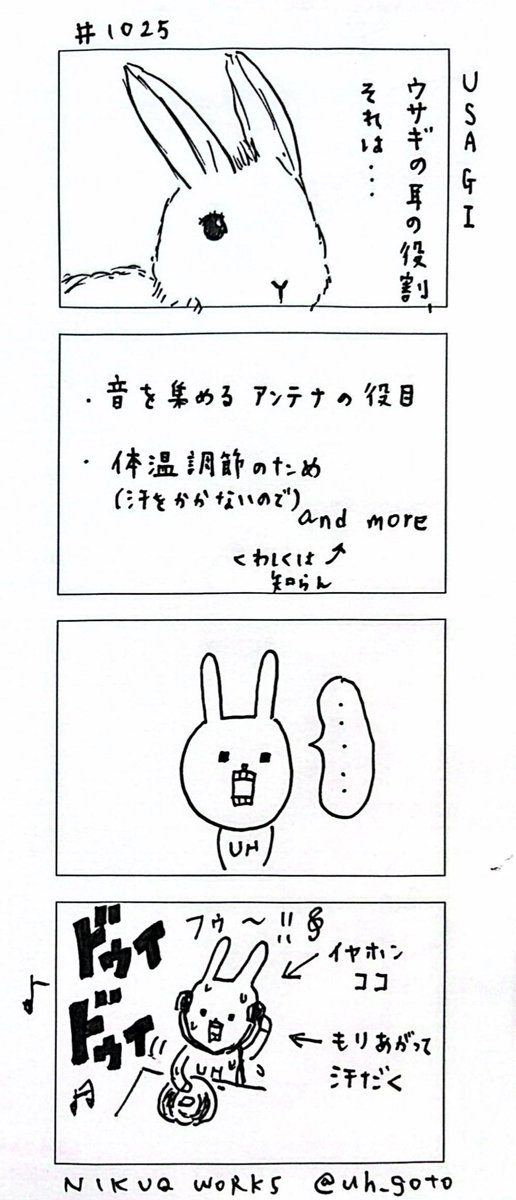 #1025
USAGI
ウサギの耳の役割、
それは・・・
・音を集めるアンテナの役目
・体温調節のため
(汗をかかないので)
and more
くわしくは
知らん
・・・・・
UH
ドゥイ
ドゥイ
フゥ〜!!
イヤホン
ココ
もりあがって
汗だく
UH
NIKUQ WORKS @uh_goto